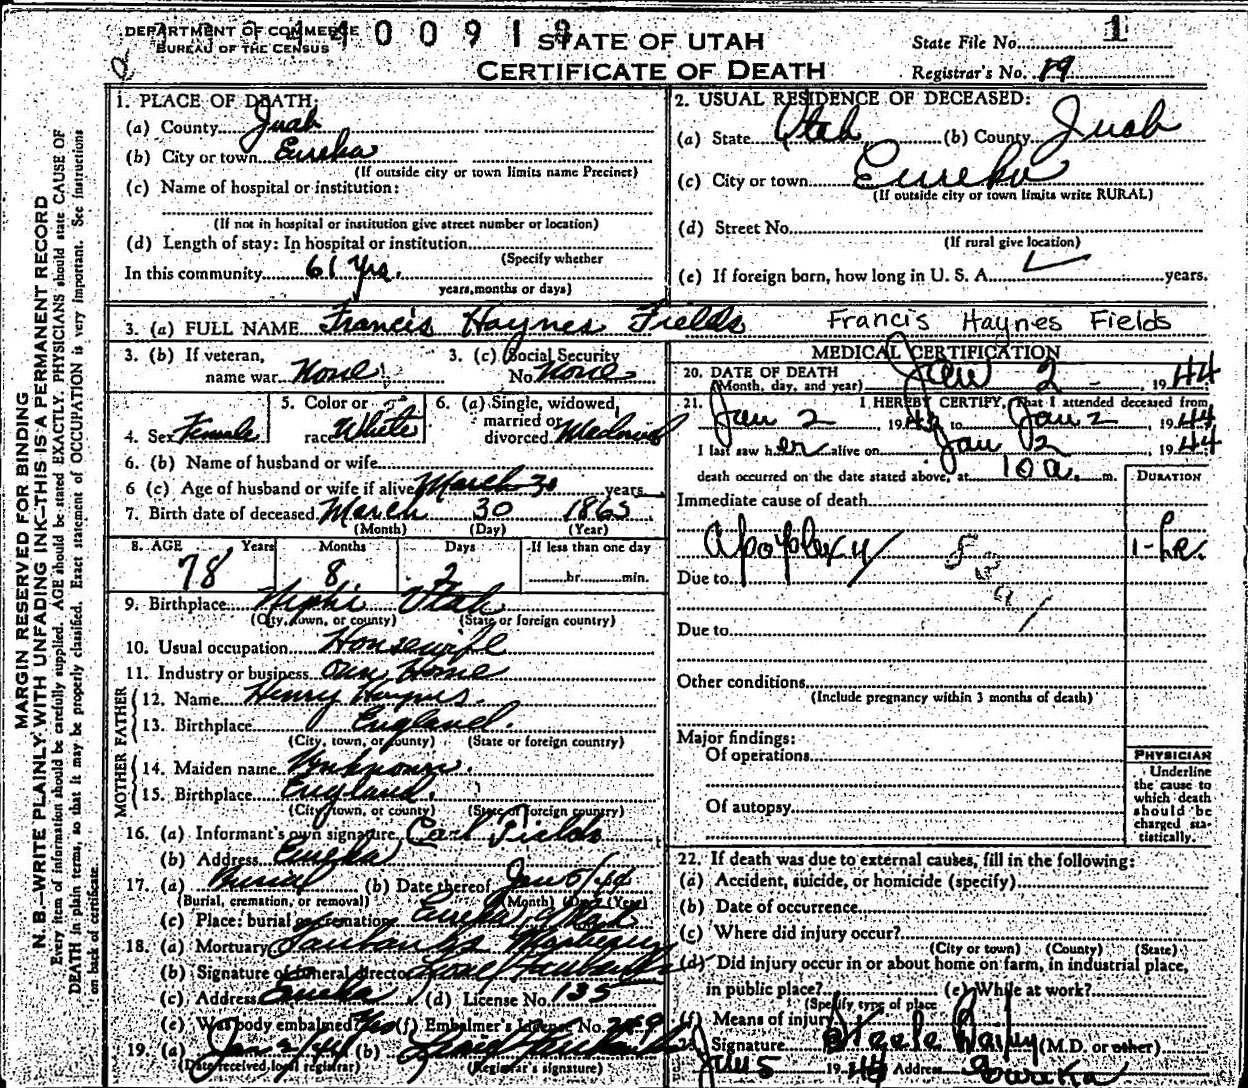 DEPARTMENT OF COMMERCE
BUREAU OF THE CENSUS
STATE OF UTAH
CERTIFICATE OF DEATH
State File No. 1
Registrar's No. 19
MARGIN RESERVED FOR BINDING
N. B.—WRITE PLAINLY WITH UNFADING INK—THIS IS A PERMANENT RECORD
Every item of information should be carefully supplied. AGE should be stated EXACTLY. PHYSICIANS should state CAUSE OF
DEATH in plain terms, so that it may be properly classified. Exact statement of OCCUPATION is very important. See instructions
on back of certificate.
1. PLACE OF DEATH:
(a) County Juab
(b) City or town Eureka
(If outside city or town limits name Precinct)
(c) Name of hospital or institution:
(If not in hospital or institution give street number or location)
(d) Length of stay: In hospital or institution
(Specify whether
In this community 61 Yrs.
years, months or days)
2. USUAL RESIDENCE OF DECEASED:
(a) State Utah (b) County Juab
(c) City or town Eureka
(If outside city or town limits write RURAL)
(d) Street No.
(If rural give location)
(e) If foreign born, how long in U. S. A. years.
3. (a) FULL NAME Francis Haynes Fields Francis Haynes Fields
3. (b) If veteran, name war None
3. (c) Social Security No. None
4. Sex Female
5. Color or race White
6. (a) Single, widowed, married or divorced
6. (b) Name of husband or wife
6 (c) Age of husband or wife if alive March 30 years
7. Birth date of deceased March 30 1865
(Month) (Day) (Year)
8. AGE Years Months Days If less than one day
78 8 2 hr. min.
9. Birthplace Nephi Utah
(City, town, or county) (State or foreign country)
10. Usual occupation Housewife
11. Industry or business Own Home
FATHER
12. Name Henry Haynes
13. Birthplace England.
(City, town, or county) (State or foreign country)
MOTHER
14. Maiden name Unknown.
15. Birthplace England.
(City, town, or county) (State or foreign country)
16. (a) Informant's own signature Carl Fields
(b) Address Eureka
17. (a) Burial (b) Date thereof Jan 5/44
(Burial, cremation, or removal) (Month) (Day) (Year)
(c) Place; burial or cremation Eureka, Utah
18. (a) Mortuary
(b) Signature of funeral director
(c) Address Eureka (d) License No. 135
(e) Was body embalmed? Yes (f) Embalmer's License No. 249
19. (a) Jan 2/44 (b)
(Date received local registrar) (Registrar's signature)
MEDICAL CERTIFICATION
20. DATE OF DEATH
(Month, day, and year) Jan 2 - , 1944
21. I HEREBY CERTIFY, That I attended deceased from
Jan 2, 19 to Jan 2 1944
I last saw her alive on Jan 2 1944
death occurred on the date stated above, at 10 a. m.
DURATION
Immediate cause of death
Apoplexy 1-hr.
Due to
Due to
Other conditions
(Include pregnancy within 3 months of death)
Major findings:
Of operations
Of autopsy
PHYSICIAN
Underline
the cause to
which death
should be
charged sta-
tistically.
22. If death was due to external causes, fill in the following:
(a) Accident, suicide, or homicide (specify)
(b) Date of occurrence
(c) Where did injury occur?
(City or town) (County) (State)
(d) Did injury occur in or about home on farm, in industrial place,
in public place? (e) While at work?
(Specify type of place
(f) Means of injury
Signature Steele Bailey (M.D. or other)
Jan 5 1944 Address Eureka